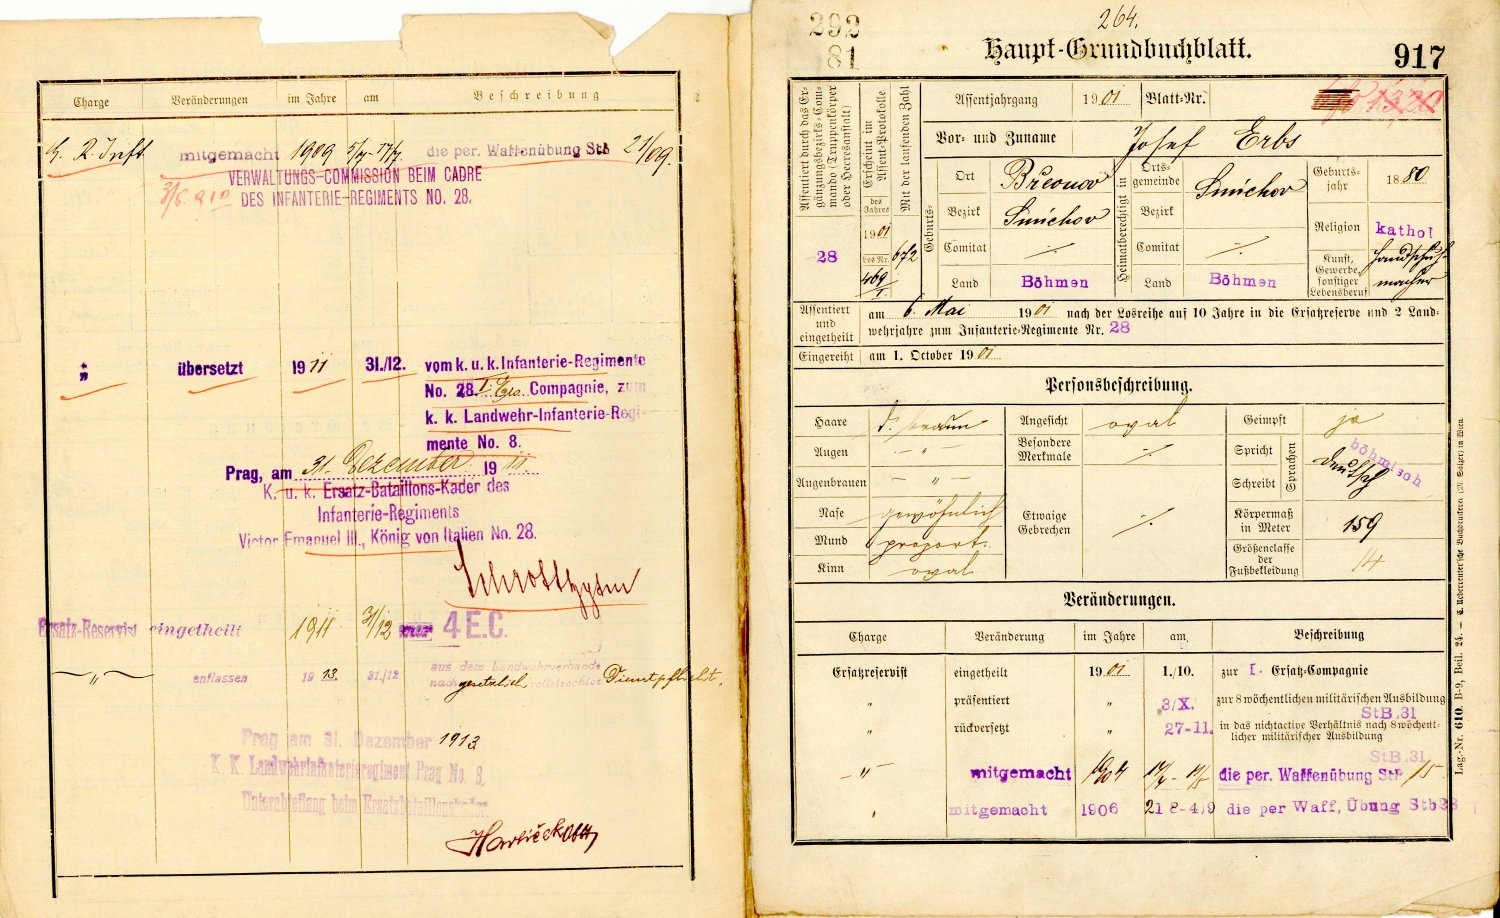 Charge Veränderungen im Jahre am Beschreibung
E. R. Inft. mitgemacht 1909 5/7-17/7. die per. Waffenübung Stb 21/09.
3/6. 910 VERWALTUNGS-COMMISSION BEIM CADRE
DES INFANTERIE-REGIMENTS NO. 28.
" übersetzt 1911 31./12. vom k. u. k. Infanterie-Regimente
No. 28. I. Ers. Compagnie, zum
k. k. Landwehr-Infanterie-Regi-
mente No. 8.
Prag, am 31. Dezember 1911.
K. u. k. Ersatz-Bataillons-Kader des
Infanterie-Regiments
Victor Emanuel III., König von Italien No. 28.
Ersatz-Reservist eingetheilt 1911 31/12 zur 4 E.C.
" entlassen 1913. 31./12 aus dem Landwehrverbande
nach gesetzlich vollstreckter Dienstpflicht.
Prag am 31. Dezember 1913
K. K. Landwehrinfanterieregiment Prag No. 8.
Unterabteilung beim Ersatzbataillonskader.
292
81
264.
Haupt-Grundbuchblatt.
917
Assentiert durch das Er-
gänzungsbezirks-Com-
mando (Truppenkörper
oder Heeresanstalt)
28
Erscheint im
Assent-Protokolle
des
Jahres
1901
Los Nr.
469/I.
Mit der laufenden Zahl
672
Assentjahrgang 1901 Blatt-Nr.
Vor- und Zuname Josef Erbs
Geburts-
Ort Břeonov
Bezirk Smichov
Comitat ./.
Land Böhmen
Heimatberechtigt in
Orts-
gemeinde Smichov
Bezirk
Comitat ./.
Land Böhmen
Geburts-
jahr 1880
Religion kathol
Kunst,
Gewerbe,
sonstiger
Lebensberuf Handschuh-
macher
Assentiert
und
eingetheilt
am 6. Mai 1901 nach der Losreihe auf 10 Jahre in die Ersatzreserve und 2 Land-
wehrjahre zum Infanterie-Regimente Nr. 28
Eingereiht am 1. October 1901
Personsbeschreibung.
Haare d. braun
Augen — " —
Augenbrauen — " —
Nase gewöhnlich
Mund proport.
Kinn oval
Angesicht oval
Besondere
Merkmale ./.
Etwaige
Gebrechen ./.
Geimpft ja
Spricht
Schreibt
Sprachen
deutsch
böhmisch
Körpermaß
in Meter 159
Größenclasse
der
Fußbekleidung 14
Veränderungen.
Charge Veränderung im Jahre am Beschreibung
Ersatzreservist eingetheilt 1901 1./10. zur I. Ersatz-Compagnie
" präsentiert " 3/X. zur 8 wöchentlichen militärischen Ausbildung
StB.31
" rückversetzt " 27-11. in das nichtactive Verhältnis nach 8 wöchent-
licher militärischer Ausbildung
StB.31
—"— mitgemacht 1904 die per. Waffenübung Stb 15
" mitgemacht 1906 21 8-4/9 die per Waff, Übung Stb 28
Lag.-Nr. 610. B-9, Beil. 24. —